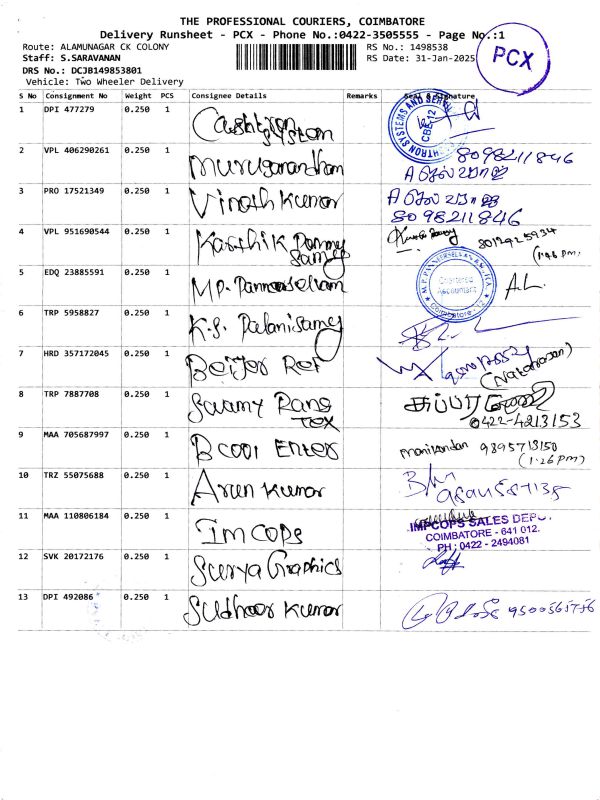 THE PROFESSIONAL COURIERS, COIMBATORE
Delivery Runsheet - PCX - Phone No.:0422-3505555 - Page No.:1
Route: ALAMUNAGAR CK COLONY RS No.: 1498538
Staff: S.SARAVANAN RS Date: 31-Jan-2025
PCX
DRS No.: DCJB149853801
Vehicle: Two Wheeler Delivery
S No Consignment No Weight PCS Consignee Details Remarks Seal & Signature
1 DPI 477279 0.250 1 System
CBE-12
2 VPL 406290261 0.250 1 Muruganandham 8098211846
3 PRO 17521349 0.250 1 Vinoth Kumar
8098211846
4 VPL 951690544 0.250 1 Karthik
Samy
5 EDQ 23885591 0.250 1 MP. Panneerselvam
Chartered Accountant
Coimbatore - 12
6 TRP 5958827 0.250 1 K.S. Palanisamy
7 HRD 357172045 0.250 1 Beijer Ref
(Natarasan)
8 TRP 7887708 0.250 1 Swamy Rang
Tex
0422-4213153
9 MAA 705687997 0.250 1 B Cool Enter Manikandan 9895713150
(1:26 pm)
10 TRZ 55075688 0.250 1 Arun Kumar
11 MAA 110806184 0.250 1 Imcops
IMPCOPS SALES DEPO.
COIMBATORE - 641 012.
PH : 0422 - 2494081
12 SVK 20172176 0.250 1 Surya Graphics
13 DPI 492086 0.250 1 Sudhaar Kumar